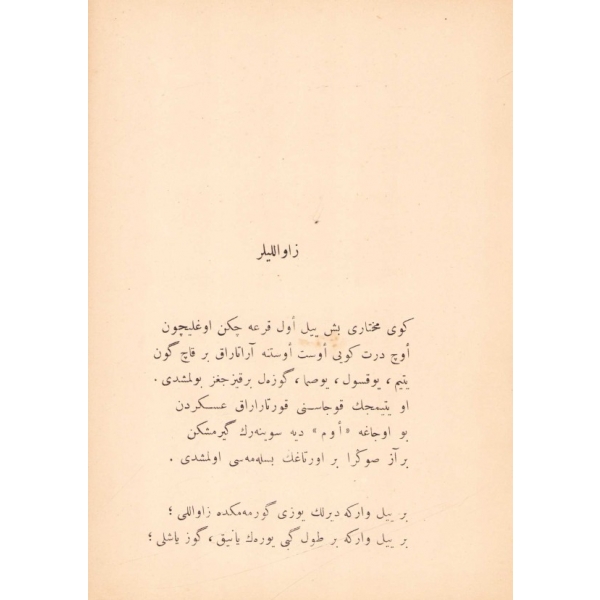 زاواللیلر
كوی مختاری بش ییل أول قرعه چكن اوغلیچون
أوچ درت كوبی أوست أوسته آراتاراق بر قاچ گون
یتیم ، یوقسول ، یوصما ، گوزەل برقیزجغز بولمشدی .
او یتیمجك قوجاسنی قورتاراراق عسكردن
بو اوجاغه «أوم» دیه سوینه‌رك گیرمشكن
برآز صوڭرا بر اورتاغڭ بسله‌مه‌سی اولمشدی .
بر ییل واركه دیرلك یوزی گورمه‌مكده زاواللی ؛
بر ییل واركه بر طول گبی یوره‌ك یانیق ، گوز یاشلی ؛